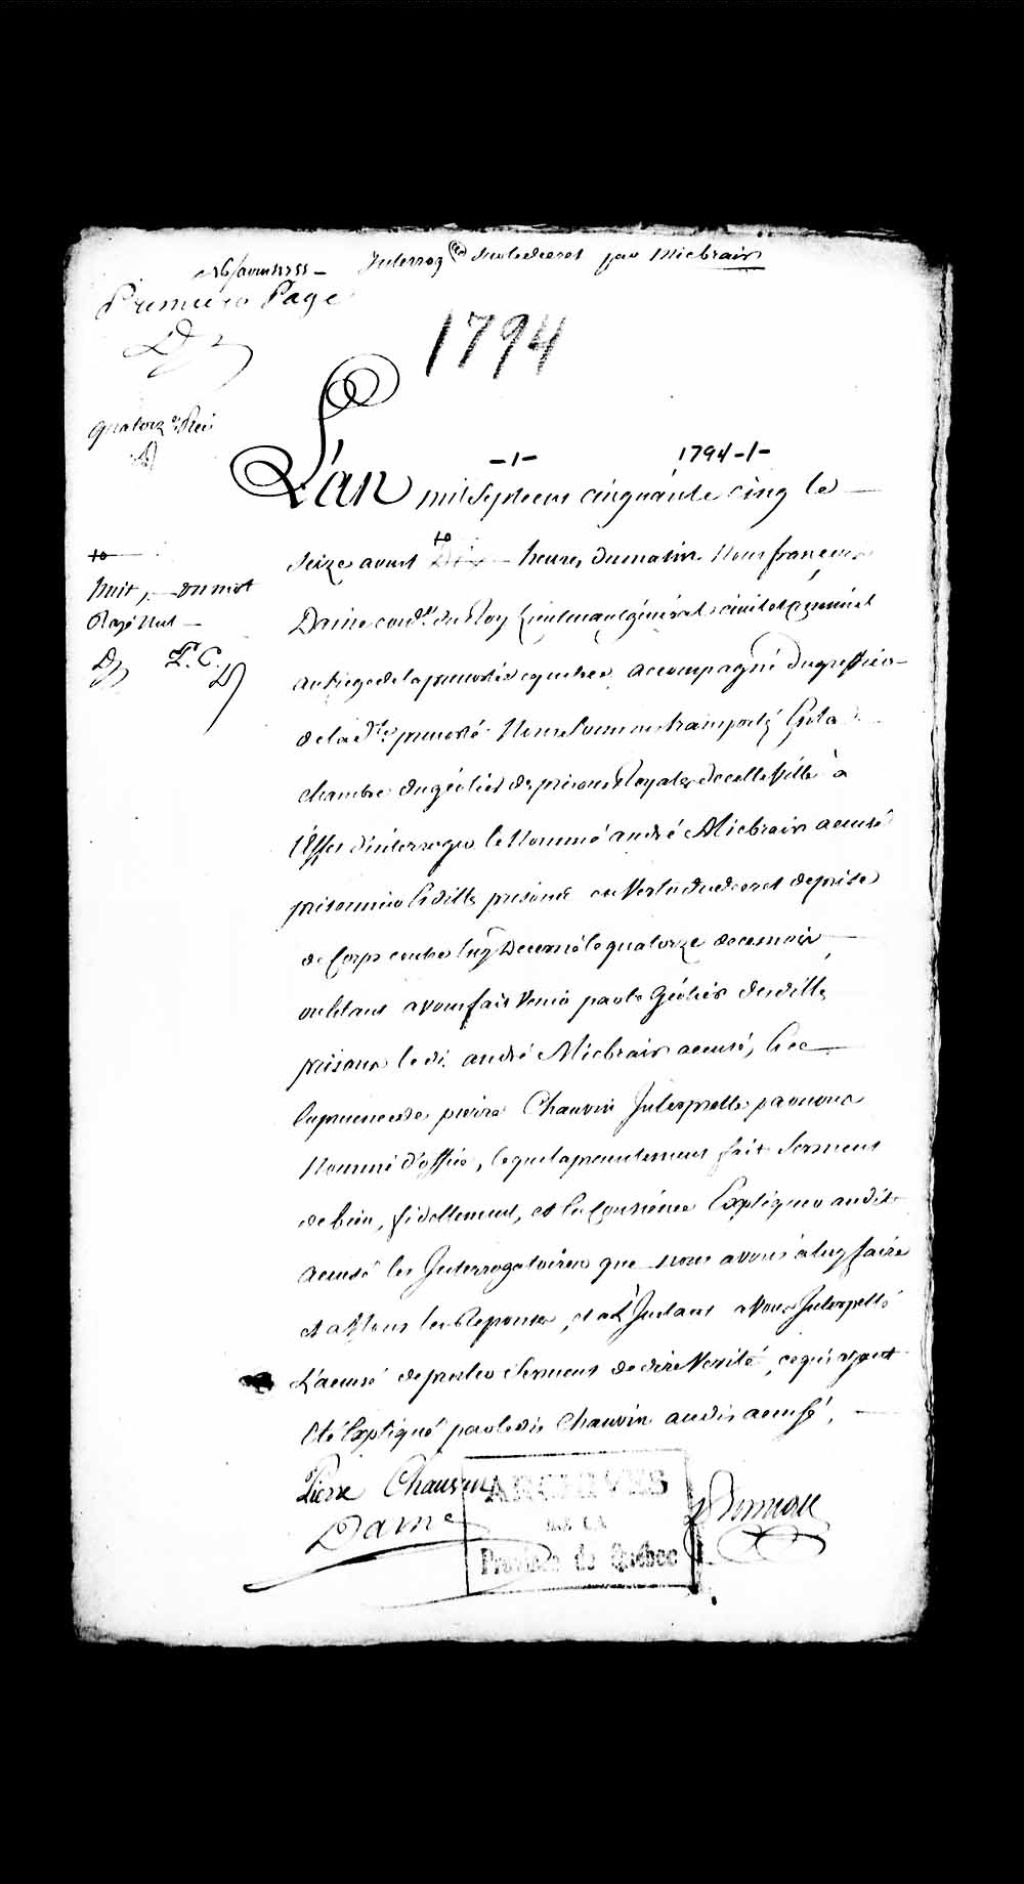 16 aoust 1755 - Interrog. sur le decret par Micbrain
Premiere Page
D
1794
quatorze. Piece
D
- 1 - 1794-1-
L'an mil Sept cens cinquante cinq le
Seize aoust Dix heures du matin Nous françois
to
huit, un mot
Rayé Nul
D P. C. D
Daine con.er du Roy Lieutenant général civil et criminel
au siege de la prevosté de quebec accompagné du greffier
de la d.te prevosté Nous sommes transporté En la
chambre du géolier des prisons Royales de cette Ville à
l'Effet d'interroger le Nommé andré Micbrain accusé
prisonnier Esdittes prisons en Vertu du decret de prise
de Corps contre luy Decerné le quatorze de ce mois,
ou Etant avons fait Venir par le Géolier desdittes
prisons le di. andré Micbrain accusé, Et en
la presence de pierre Chauvin Interprette par nous
Nommé d'office, lequel a presentement fait Serment
de bien, fidellement, et En Consience Expliquer audit
accusé les Interrogatoires que nous avons à luy faire
et a Nous les Reponses, et a L'Instant avons Interpellé
L'accusé de prester Serment de dire Verité, ce qui ayant
Eté Expliqué par le dit Chauvin audit accusé,
Pierre Chauvin
Daine
ARCHIVES
DE LA
Province de Québec